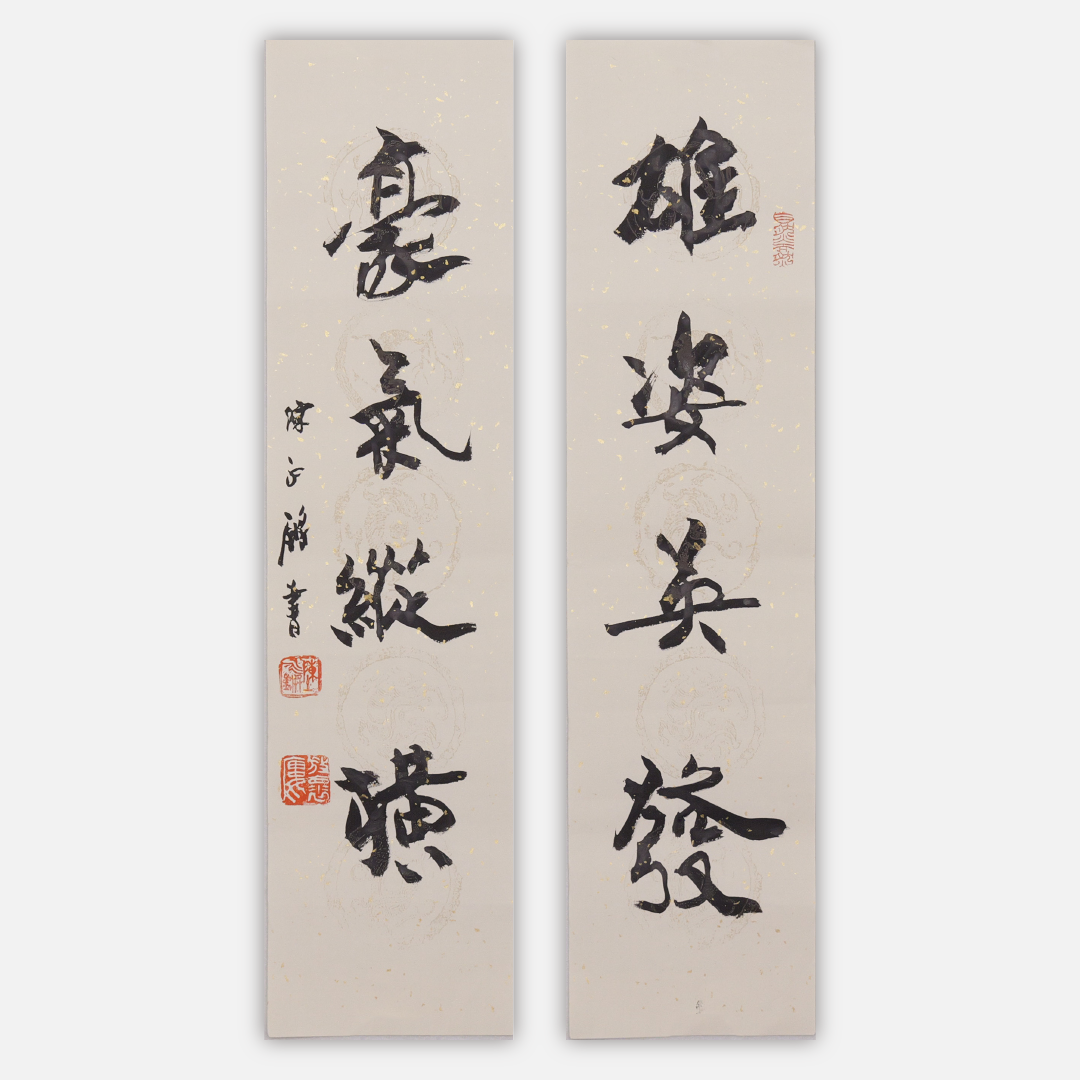 雄姿英發
豪氣縱橫
陳正
書